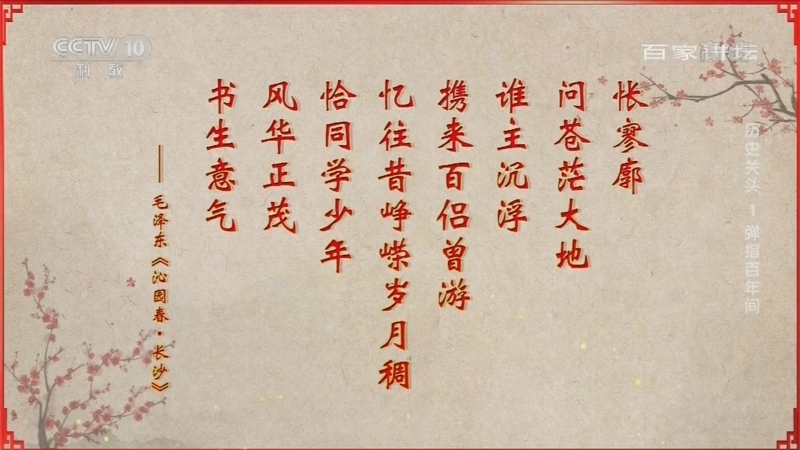 CCTV 10
科教
百家讲坛
历史关头 1 弹指百年间
怅寥廓
问苍茫大地
谁主沉浮
携来百侣曾游
忆往昔峥嵘岁月稠
恰同学少年
风华正茂
书生意气
——毛泽东《沁园春·长沙》